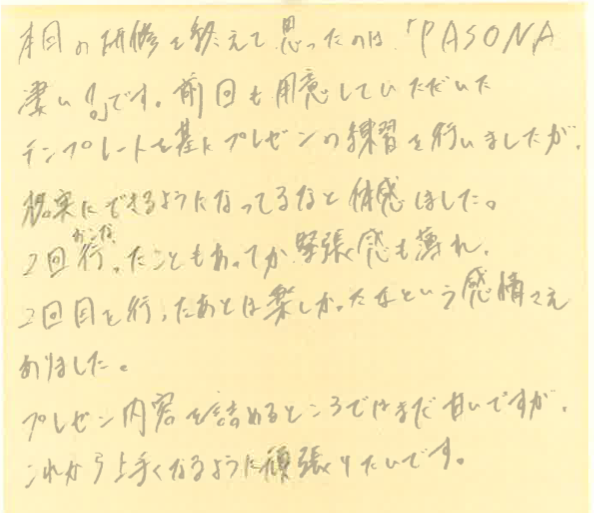 本日の研修を終えて思ったのは、「PASONA
凄い!」です。前回も用意していただいた
テンプレートを基にプレゼンの練習を行いましたが、
確実にできるようになってるなと体感しました。
2回行ったこともあってか緊張感も薄れ、
2回目を行ったあとは楽しかったなという感情さえ
ありました。
プレゼン内容を詰めるところではまだ甘いですが、
これから上手くなるように頑張りたいです。